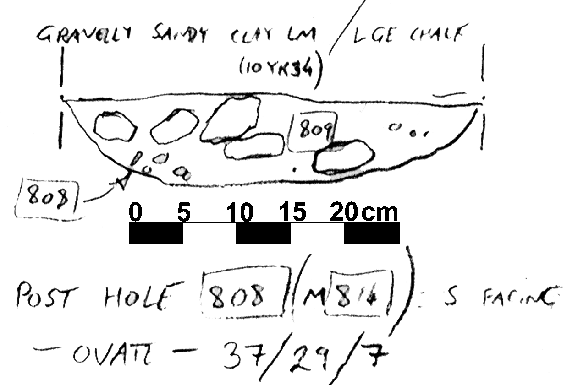 GRAVELLY SANDY CLAY LM / LGE CHALK
(10YR34)
809
808
0 5 10 15 20cm
POST HOLE 808 (M814): S FACING
- OVATE - 37/29/7